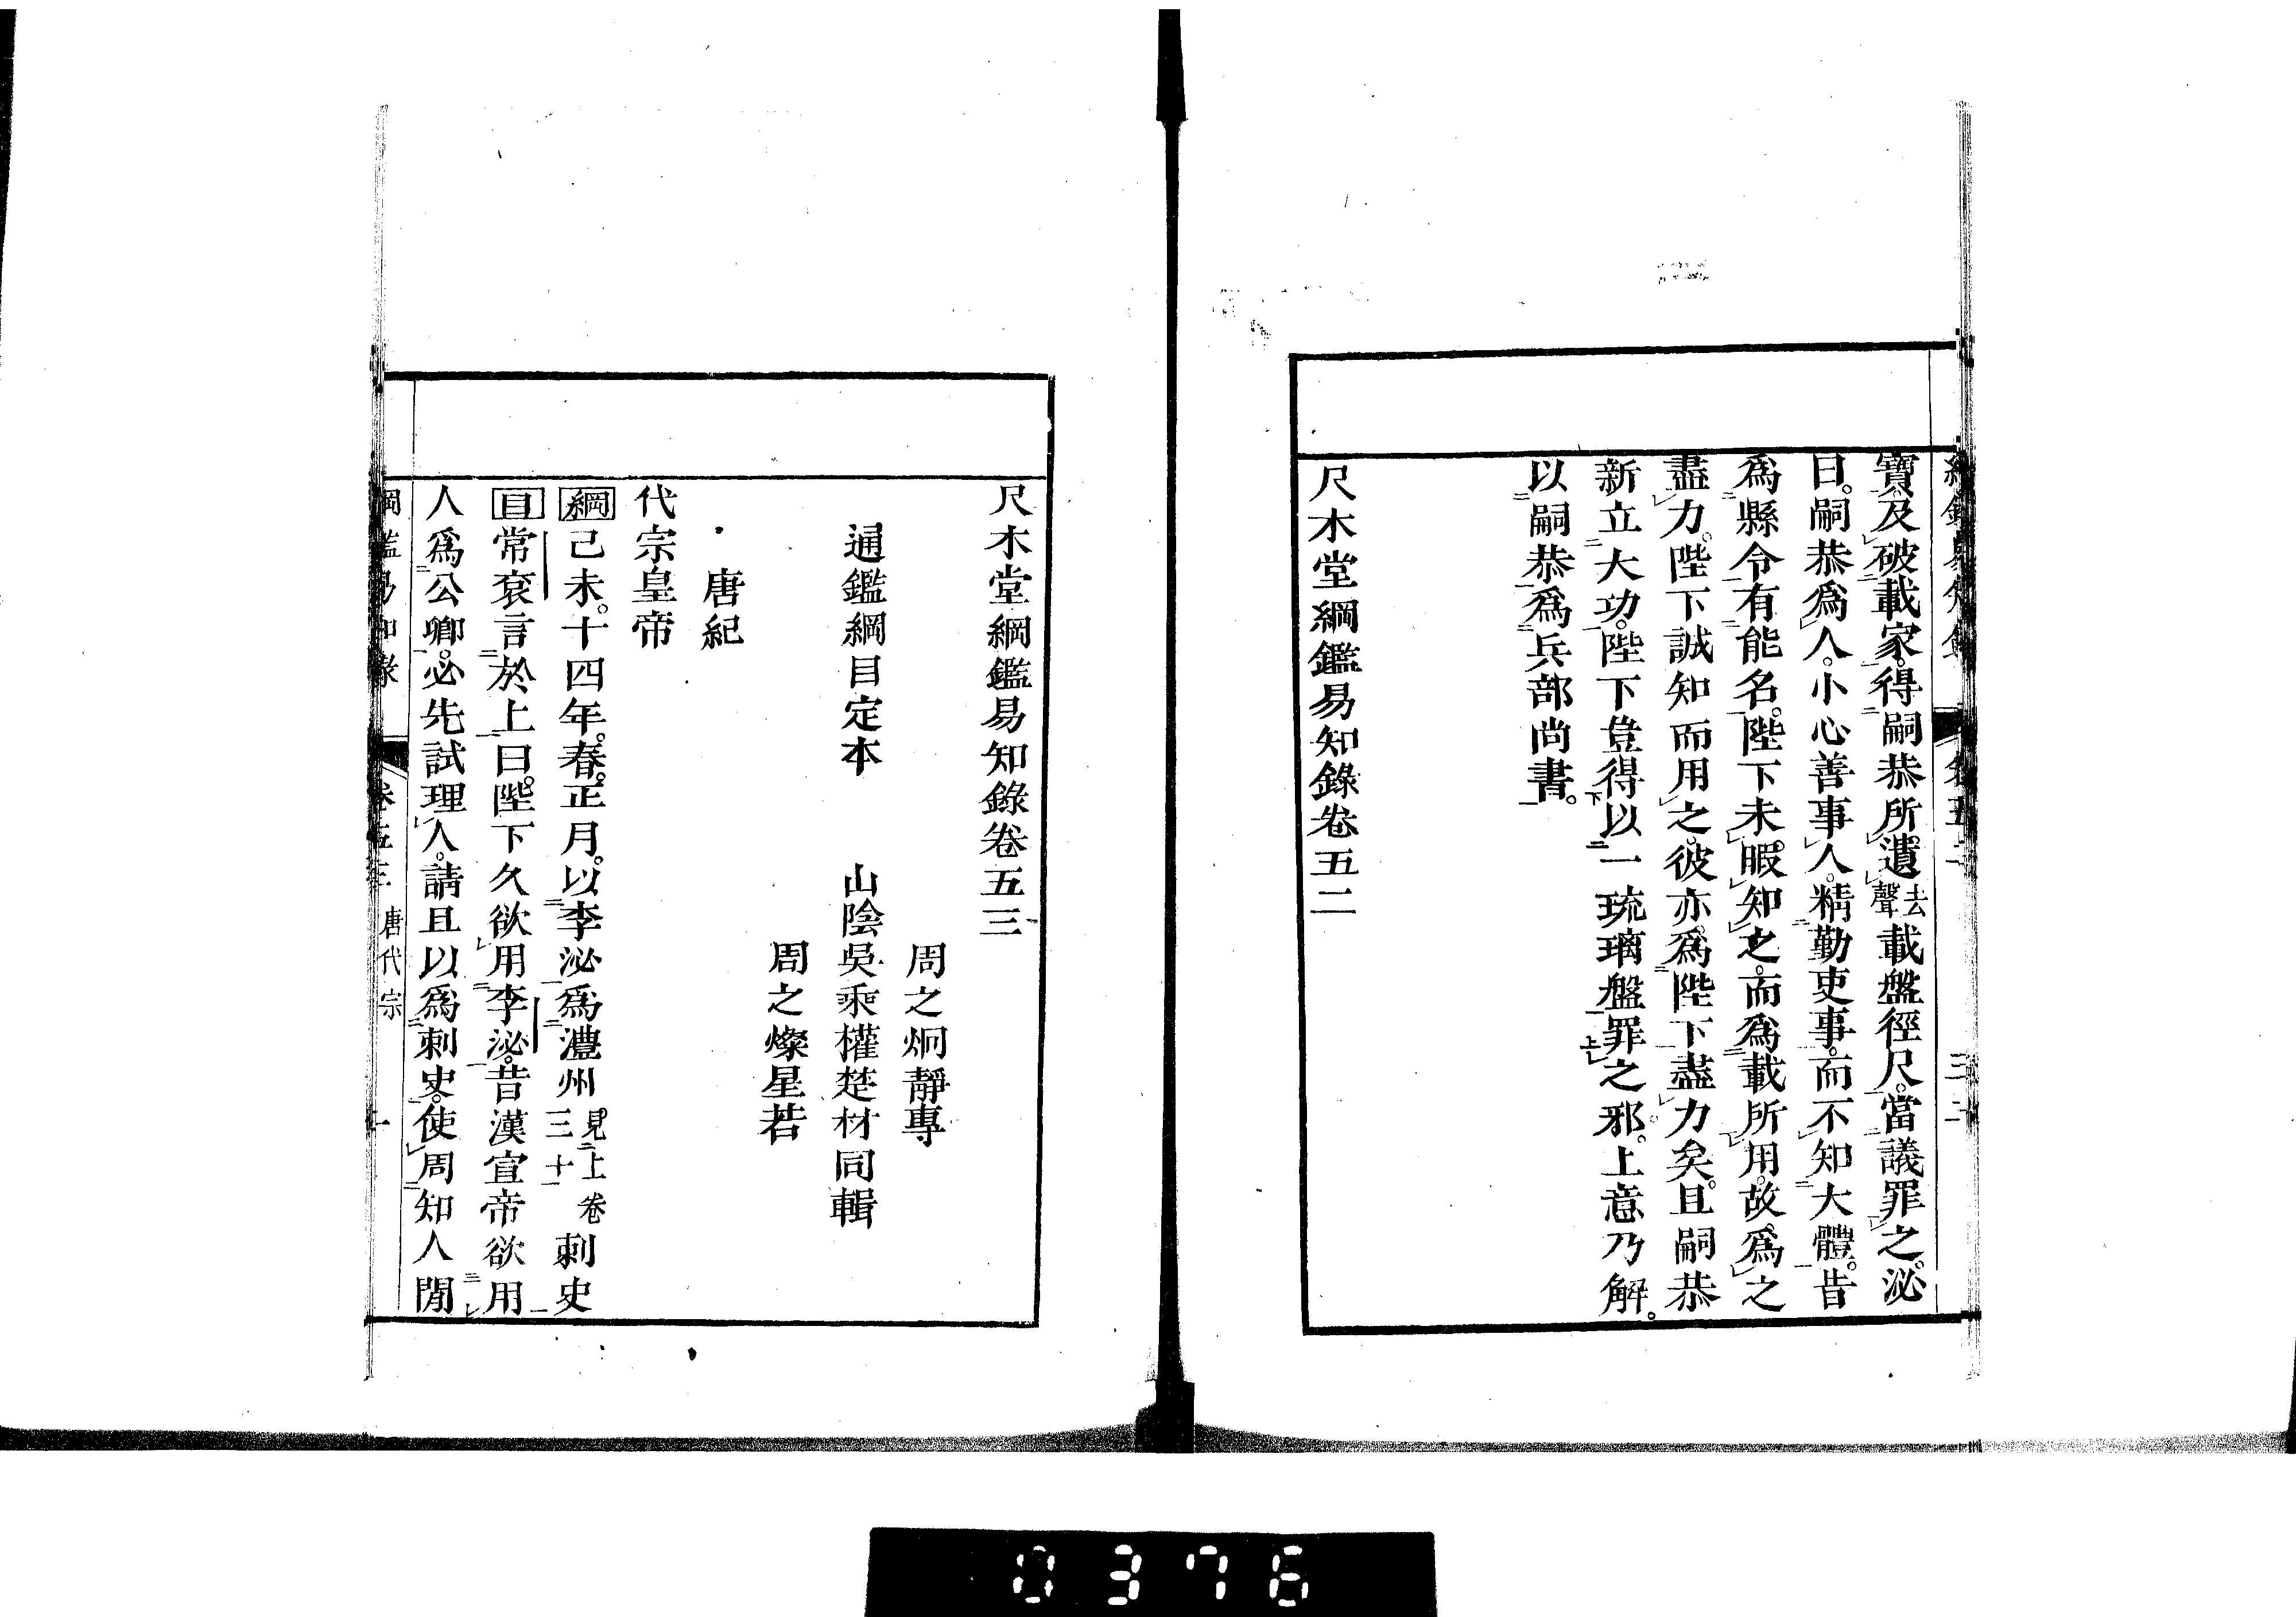 寶。及破載家。得嗣恭所遺去聲載盤徑尺。當議罪之。泌
曰。嗣恭爲人。小心善事人。精勤吏事。而不知大體。昔
爲縣令有能名。陛下未暇知之。而爲載所用。故爲之
盡力。陛下誠知而用之。彼亦爲陛下盡力矣。且嗣恭
新立大功。陛下豈得以一琉璃盤罪之邪。上意乃解。
以嗣恭爲兵部尚書。
尺木堂綱鑑易知錄卷五二
尺木堂綱鑑易知錄卷五三
周之炯靜專
通鑑綱目定本 山陰吳乘權楚材同輯
周之燦星若
唐紀
代宗皇帝
綱己未。十四年。春。正月。以李泌爲澧州見上卷三十一刺史
目常袞言於上曰。陛下久欲用李泌。昔漢宣帝欲用
人爲公卿。必先試理人。請且以爲刺史。使周知人閒
綱鑑易知錄 卷五三 唐代宗 一